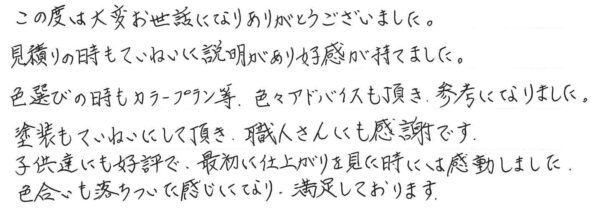 この度は大変お世話になりありがとうございました。
見積りの時もていねいに説明があり好感が持てました。
色選びの時もカラープラン等、色々アドバイスも頂き、参考になりました。
塗装もていねいにして頂き、職人さんにも感謝です。
子供達にも好評で、最初に仕上がりを見た時には感動しました。
色合いも落ちついた感じになり、満足しております。